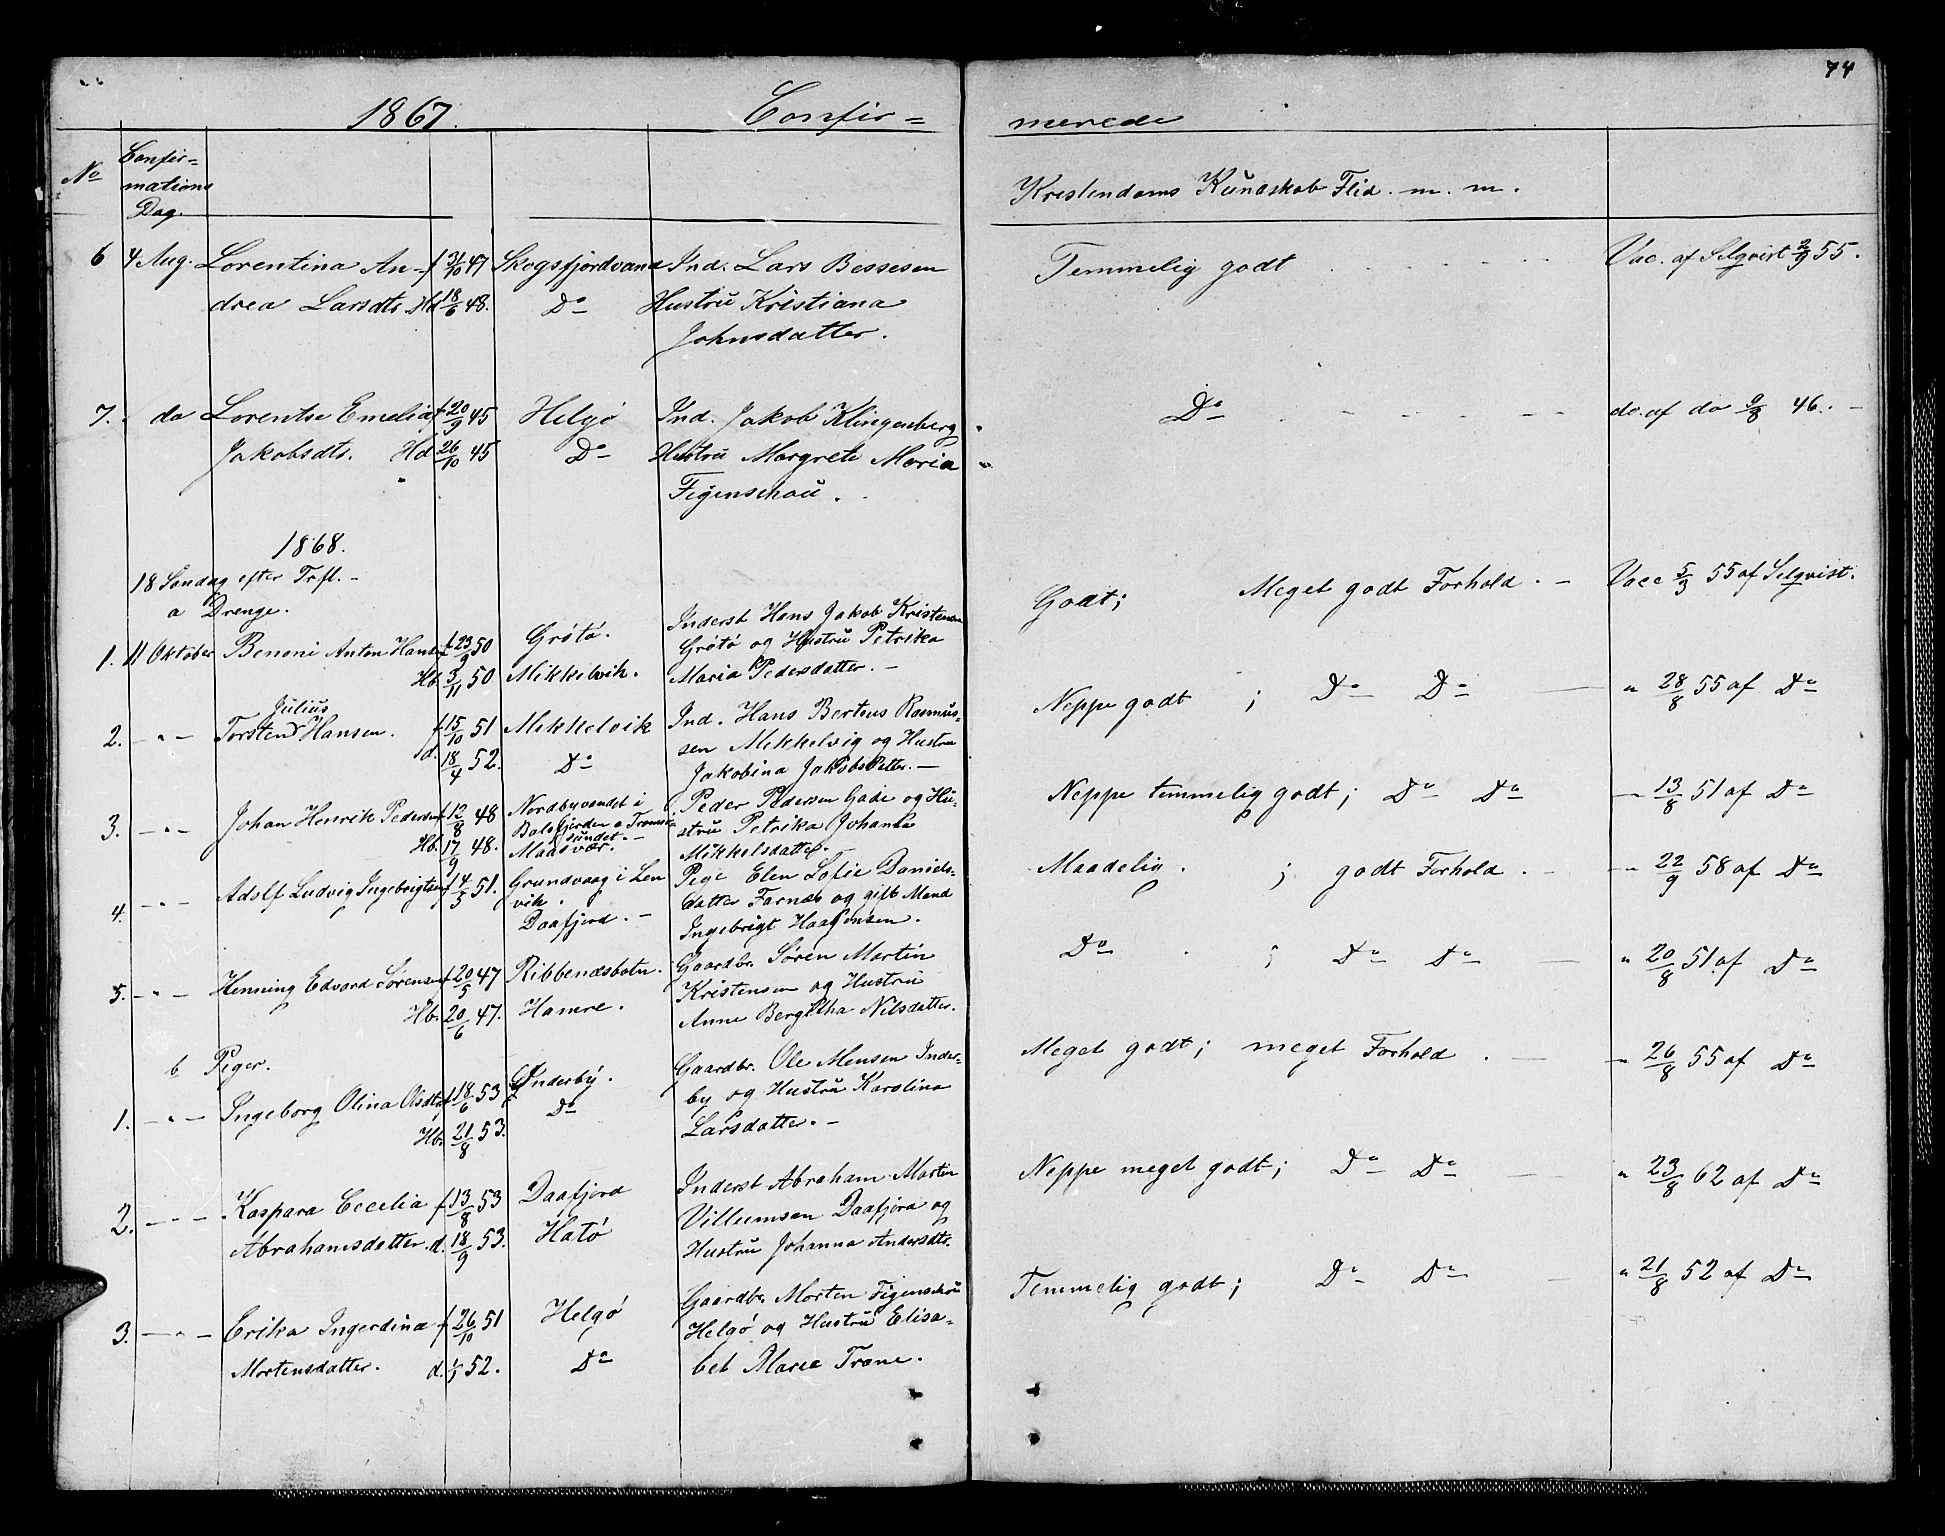 74
1867. Confir= merede
No Confir=
mations
Dag.
Kristendoms Kundskab Flid. m. m.
6 4 Aug. Lorentina An- f 3/10 47 Skogsfjordvand Ind. Lars Bessesen Temmelig godt Vac. af Selqvist 2/9 55.
drea Larsdtr. Hd 18/6 48. Do Hustru Kristiana
Johnsdatter.
7. do Lorentse Emelia f 20/9 45 Helgø Ind. Jakob Klingenberg Do do. af do 9/8 46.
Jakobsdtr. Hd 26/10 45 Do Hustru Margrete Maria
Figenschou.
1868.
18 Søndag efter Trfl.
a Drenge.
Godt; Meget godt Forhold. Vacc 5/3 55 af Selqvist.
1. 11 Oktober Benoni Anton Hansen f 23/9 50 Grøtø. Inderst Hans Jakob Kristensen
Hb. 3/11 50 Mikkelvik. Grøtø og Hustru Petrika
Maria Pedersdatter.
2. " Torsten Julius Hansen. f 15/10 51 Mikkelvik Ind. Hans Berteus Rasmus- Neppe godt; Do Do " 28/8 55 af Do
d. 18/4 52. Do sen Mikkelvig og Hustru
Jakobina Jakobsdatter.
3. " Johan Henrik Pedersen f 12/8 48 Nordbyvandet i Peder Pedersen Gade og Hu- Neppe temmelig godt; Do Do " 13/8 51 af Do
Hb. 17/9 48. Balsfjorden a Tromsø- stru Petrika Johanna
sundet. Maasvær. Mikkelsdatter.
4. " Adolf Ludvig Ingebrigtsen f 14/5 51. Grundvaag i Len Pige Elen Sofie Daniels- Maadelig. ; godt Forhold. " 22/9 58 af Do
vik. datter Farnæs og gift Mand
Daafjord. Ingebrigt Haagensen.
5. " Henning Edvard Sørensen f 20/5 47 Ribbenæsbotn. Gaardbr. Søren Martin Do ; Do Do " 20/8 51 af Do
Hb. 20/6 47. Hamre. Kristensen og Hustru
Anne Bergitha Nilsdatter.
b Piger.
1. " Ingeborg Olina Olsdtr f 18/6 53 Inderby. Gaardbr. Ole Mensen Inder- Meget godt; meget Forhold. " 26/8 55 af Do
Hb. 21/8 53. Do by og Hustru Karolina
Larsdatter.
2. " Kaspara Cecelia f 13/8 53 Daafjord Inderst Abraham Martin Neppe meget godt; Do Do " 23/8 62 af Do
Abrahamsdatter. d. 18/9 53. Hatø Villumsen Daafjord og
Hustru Johanna Andersdtr.
3. " Erika Ingerdina f 26/10 51 Helgø Gaardbr. Morten Figenschou Temmelig godt; Do Do " 21/8 52 af Do
Mortensdatter. d. 1/1 52. Do Helgø og Hustru Elisa-
bet Marie Trane.